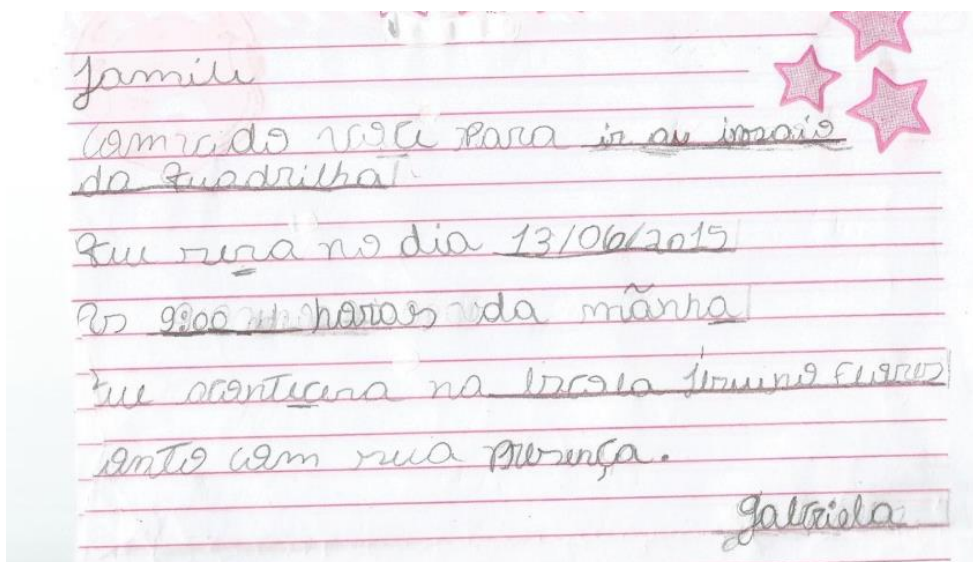 Jamili
comvido você para ir au insaio
da quadrilha
que sera no dia 13/06/2015
As 9:00 horas da mãnha
que acontecera na Escola
conto com sua presença.
gabriela